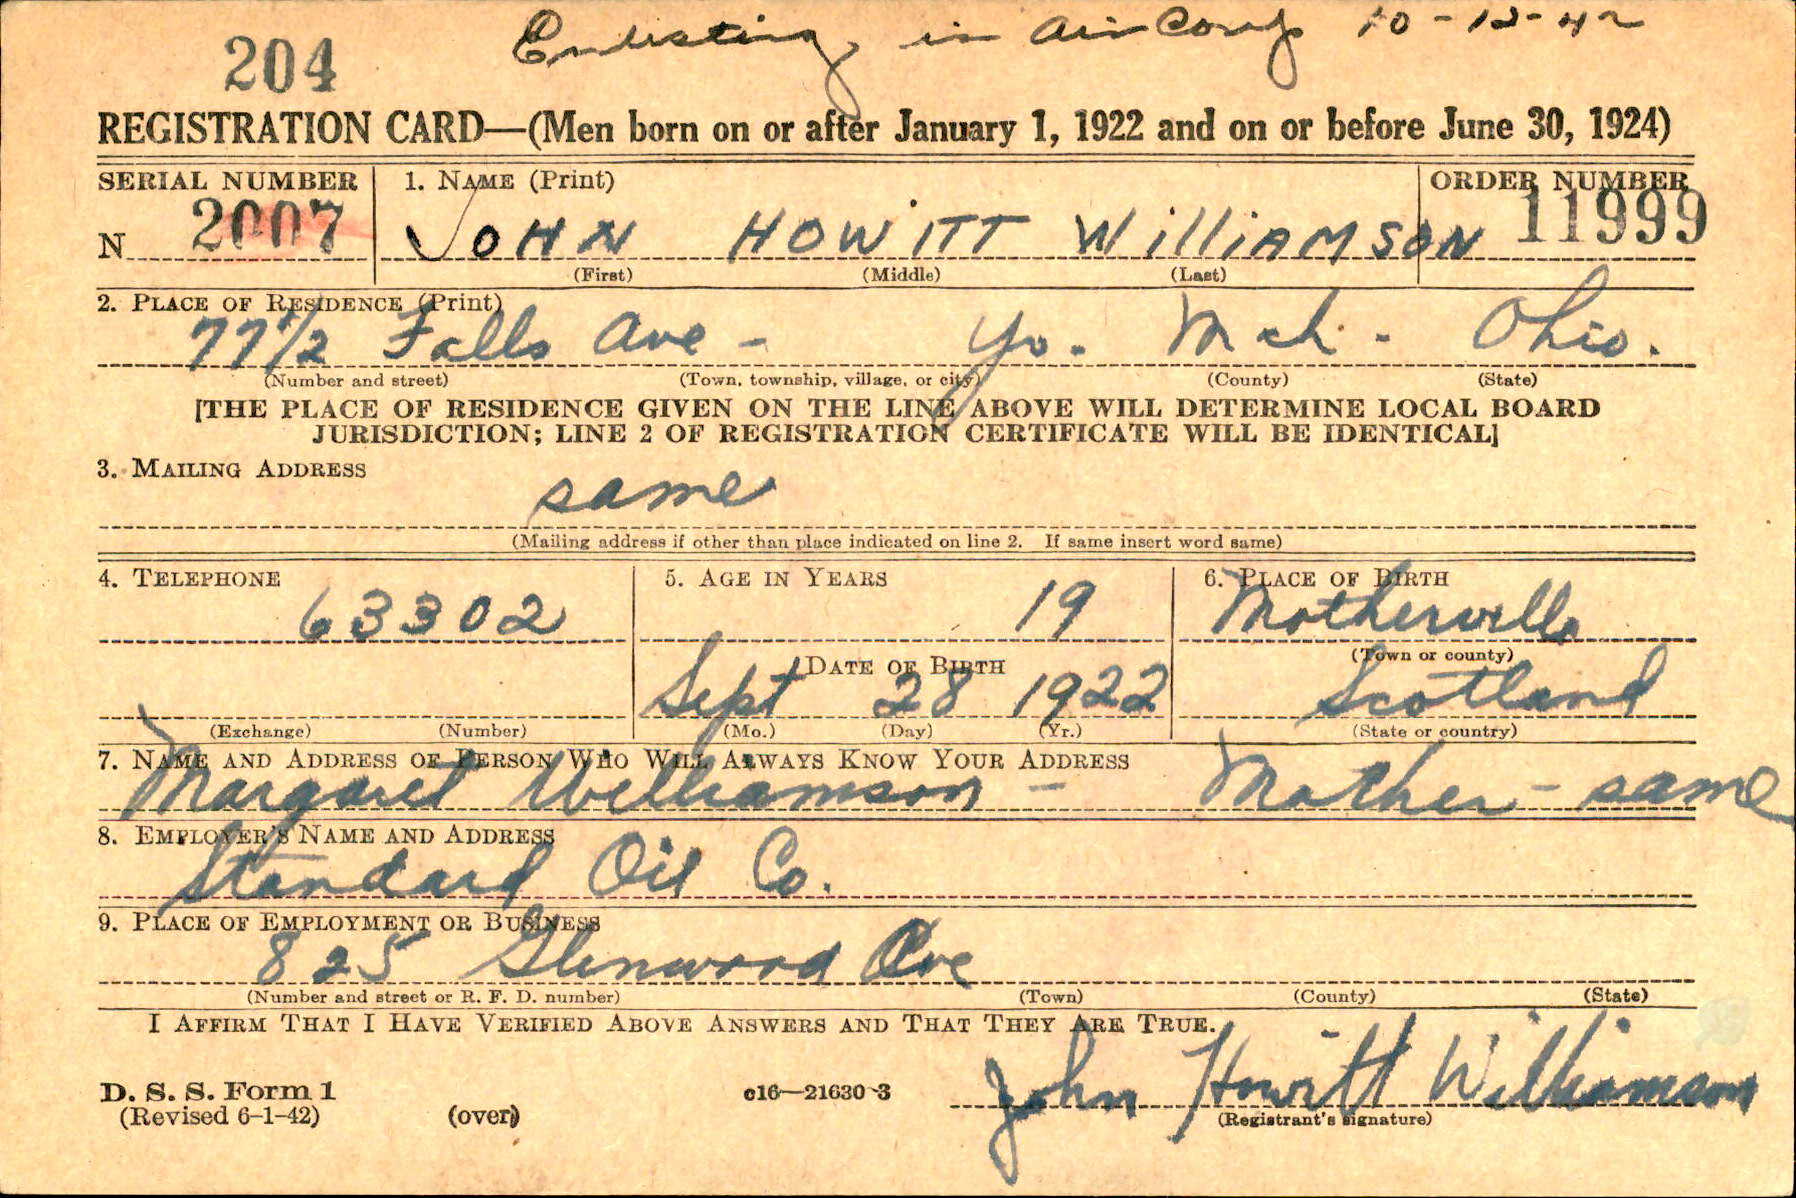 Enlisting in Air Corps 10-12-42
204
REGISTRATION CARD—(Men born on or after January 1, 1922 and on or before June 30, 1924)
SERIAL NUMBER 1. NAME (Print) ORDER NUMBER
N 2007 JOHN HOWITT WilliAMSON 11999
(First) (Middle) (Last)
2. PLACE OF RESIDENCE (Print)
77 1/2 Falls Ave - Yo. Mah. - Ohio.
(Number and street) (Town, township, village, or city) (County) (State)
[THE PLACE OF RESIDENCE GIVEN ON THE LINE ABOVE WILL DETERMINE LOCAL BOARD
JURISDICTION; LINE 2 OF REGISTRATION CERTIFICATE WILL BE IDENTICAL]
3. MAILING ADDRESS
same
(Mailing address if other than place indicated on line 2. If same insert word same)
4. TELEPHONE 5. AGE IN YEARS 6. PLACE OF BIRTH
63302 19 Motherwell
DATE OF BIRTH (Town or county)
Sept 28 1922 Scotland
(Exchange) (Number) (Mo.) (Day) (Yr.) (State or country)
7. NAME AND ADDRESS OF PERSON WHO WILL ALWAYS KNOW YOUR ADDRESS
Margaret Williamson - Mother - same
8. EMPLOYER'S NAME AND ADDRESS
Standard Oil Co.
9. PLACE OF EMPLOYMENT OR BUSINESS
825 Glenwood Ave
(Number and street or R. F. D. number) (Town) (County) (State)
I AFFIRM THAT I HAVE VERIFIED ABOVE ANSWERS AND THAT THEY ARE TRUE.
John Howitt Williamson
D. S. S. Form 1 c16—21630-3
(Revised 6-1-42) (over) (Registrant's signature)